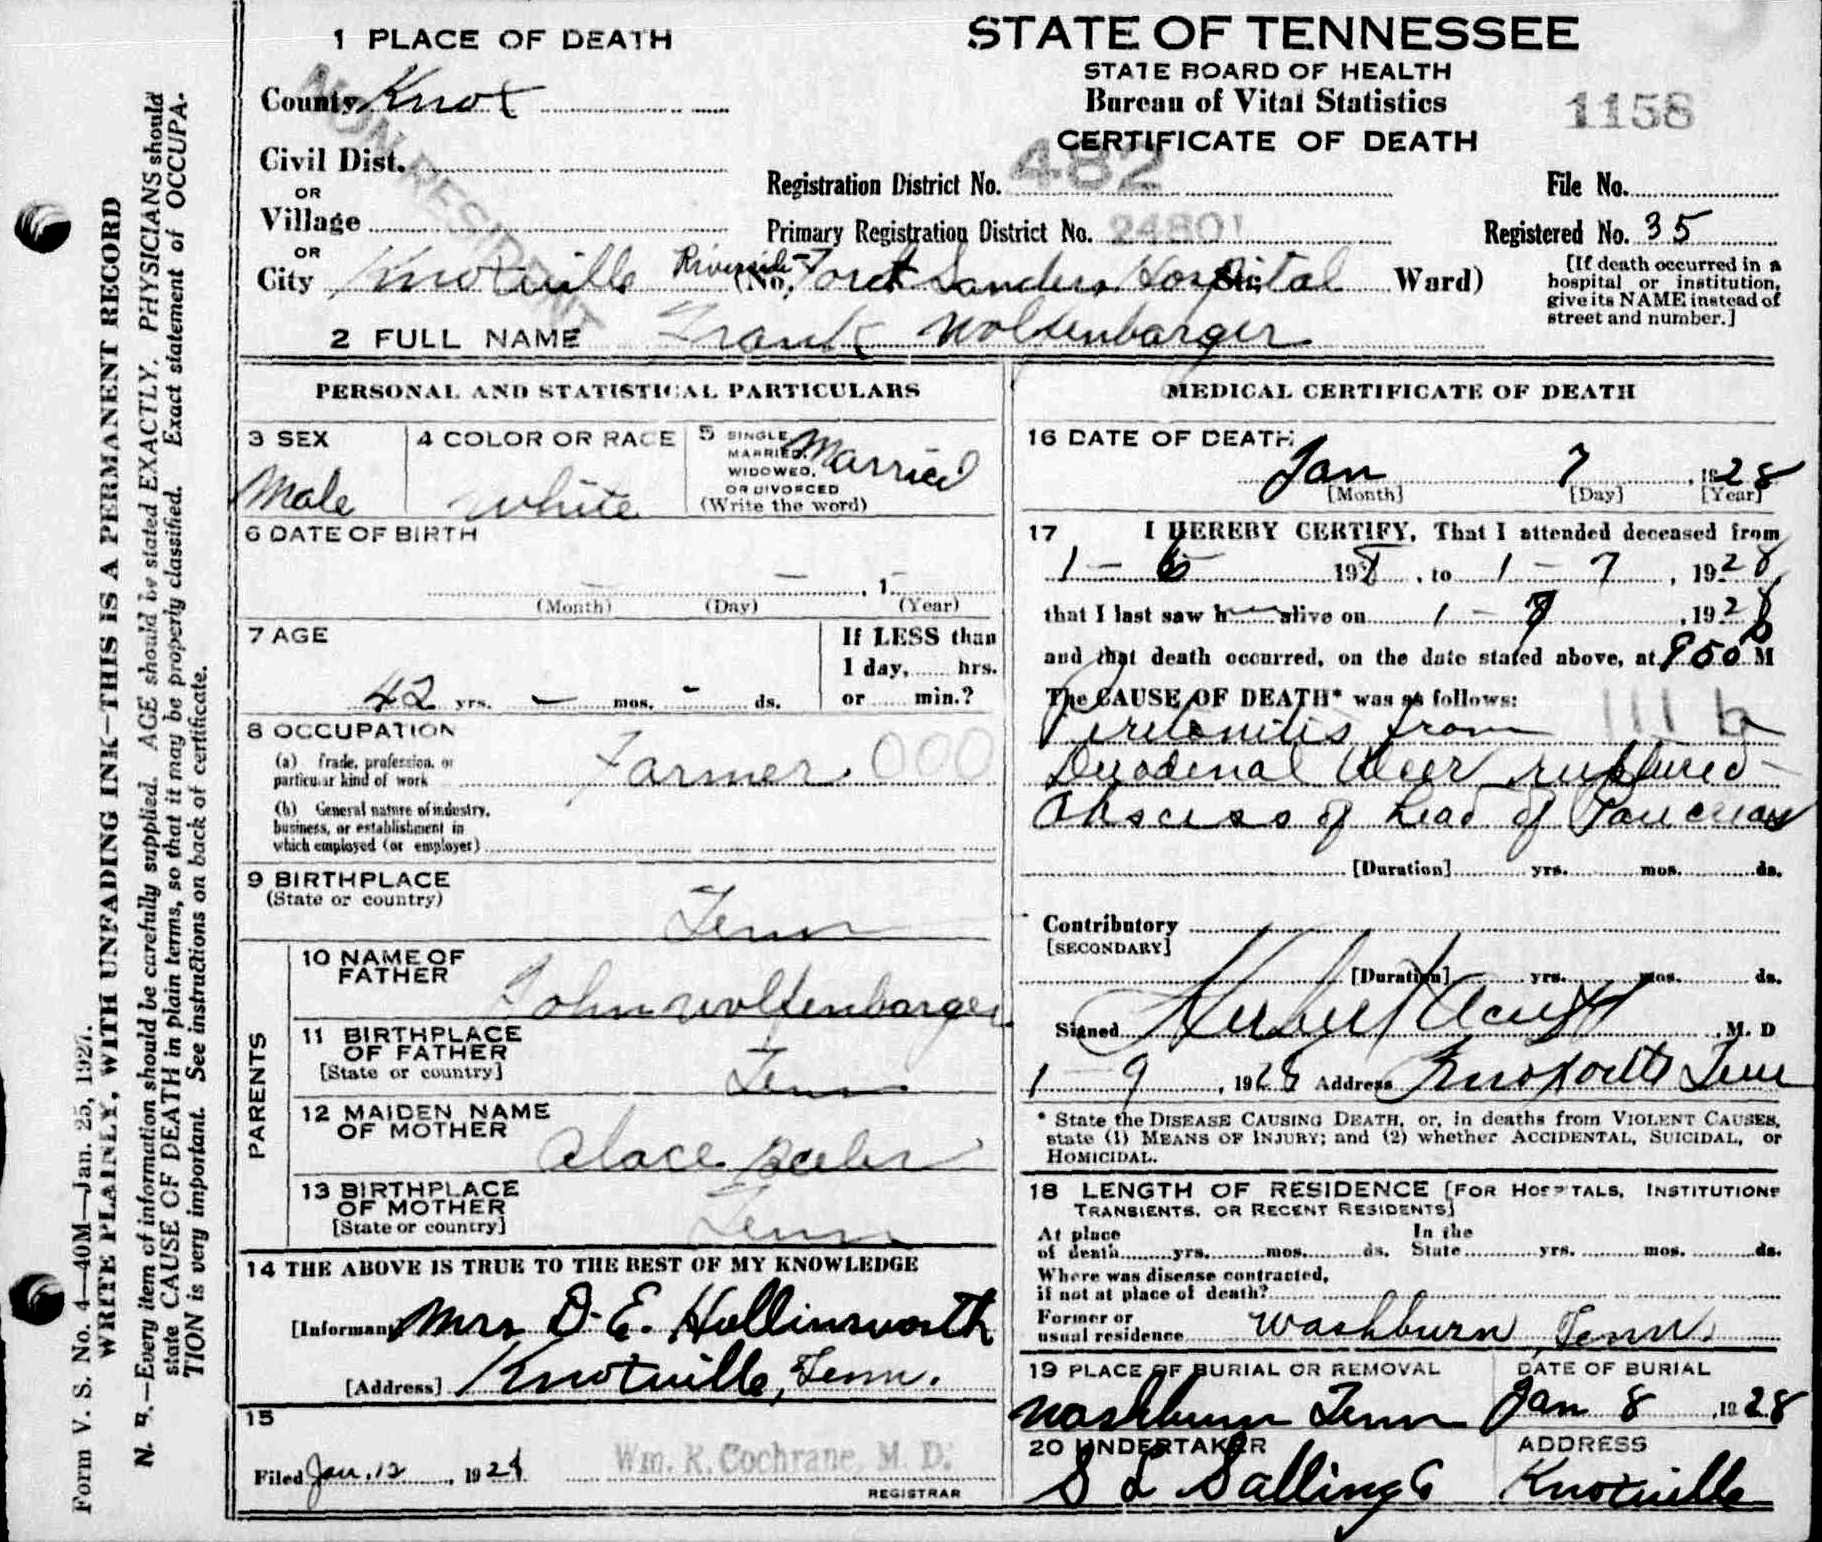 1 PLACE OF DEATH
STATE OF TENNESSEE
STATE BOARD OF HEALTH
Bureau of Vital Statistics
CERTIFICATE OF DEATH
1158
County Knox
NON RESIDENT
Civil Dist.
OR
Village
OR
City Knoxville Riverside-Fort Sanders Hospital (No. St; Ward)
Registration District No. 482
File No.
Primary Registration District No. 24801
Registered No. 35
[If death occurred in a
hospital or institution,
give its NAME instead of
street and number.]
2 FULL NAME Frank Wolfenbarger
PERSONAL AND STATISTICAL PARTICULARS
3 SEX
Male
4 COLOR OR RACE
White
5 SINGLE
MARRIED,
WIDOWED,
OR DIVORCED
(Write the word)
Married
6 DATE OF BIRTH
— — , 1
(Month) (Day) (Year)
7 AGE
42 yrs. – mos. - ds.
If LESS than
1 day, hrs.
or min.?
8 OCCUPATION
(a) Trade, profession, or
particular kind of work Farmer. 000
(b) General nature of industry,
business, or establishment in
which employed (or employer)
9 BIRTHPLACE
(State or country)
Tenn
PARENTS
10 NAME OF
FATHER
John Wolfenbarger
11 BIRTHPLACE
OF FATHER
[State or country]
Tenn
12 MAIDEN NAME
OF MOTHER
Alace Beeler
13 BIRTHPLACE
OF MOTHER
[State or country]
Tenn
14 THE ABOVE IS TRUE TO THE BEST OF MY KNOWLEDGE
[Informant Mrs D. E. Hollinsworth
[Address] Knoxville, Tenn.
15
Filed Jan. 12, 1928 Wm. R. Cochrane, M. D.
REGISTRAR
MEDICAL CERTIFICATE OF DEATH
16 DATE OF DEATH
Jan 7, 1928
[Month] [Day] [Year]
17 I HEREBY CERTIFY, That I attended deceased from
1 – 6 198, to 1 – 7, 1928
that I last saw h alive on 1 – 7, 1928
and that death occurred, on the date stated above, at 950 M
The CAUSE OF DEATH* was as follows:
111 b
Peritonitis from
Duodenal Ulcer ruptured –
Abscess of head of Pancreas
[Duration] yrs. mos. ds.
Contributory
[SECONDARY]
[Duration] yrs. mos. ds.
Signed Herbert Acuff, M. D
1 – 9, 1928 Address Knoxville Tenn
* State the DISEASE CAUSING DEATH, or, in deaths from VIOLENT CAUSES,
state (1) MEANS OF INJURY; and (2) whether ACCIDENTAL, SUICIDAL, or
HOMICIDAL.
18 LENGTH OF RESIDENCE [FOR HOSPITALS, INSTITUTIONS
TRANSIENTS, OR RECENT RESIDENTS]
At place
of death yrs. mos. ds.
In the
State yrs. mos. ds.
Where was disease contracted,
if not at place of death?
Former or
usual residence Washburn, Tenn.
19 PLACE OF BURIAL OR REMOVAL
Washburn Tenn
DATE OF BURIAL
Jan 8, 1928
20 UNDERTAKER
S L Sallings
ADDRESS
Knoxville
Form V. S. No. 4—40M—Jan. 25, 1927.
WRITE PLAINLY, WITH UNFADING INK—THIS IS A PERMANENT RECORD
N. B.—Every item of information should be carefully supplied. AGE should be stated EXACTLY. PHYSICIANS should
state CAUSE OF DEATH in plain terms, so that it may be properly classified. Exact statement of OCCUPA-
TION is very important. See instructions on back of certificate.